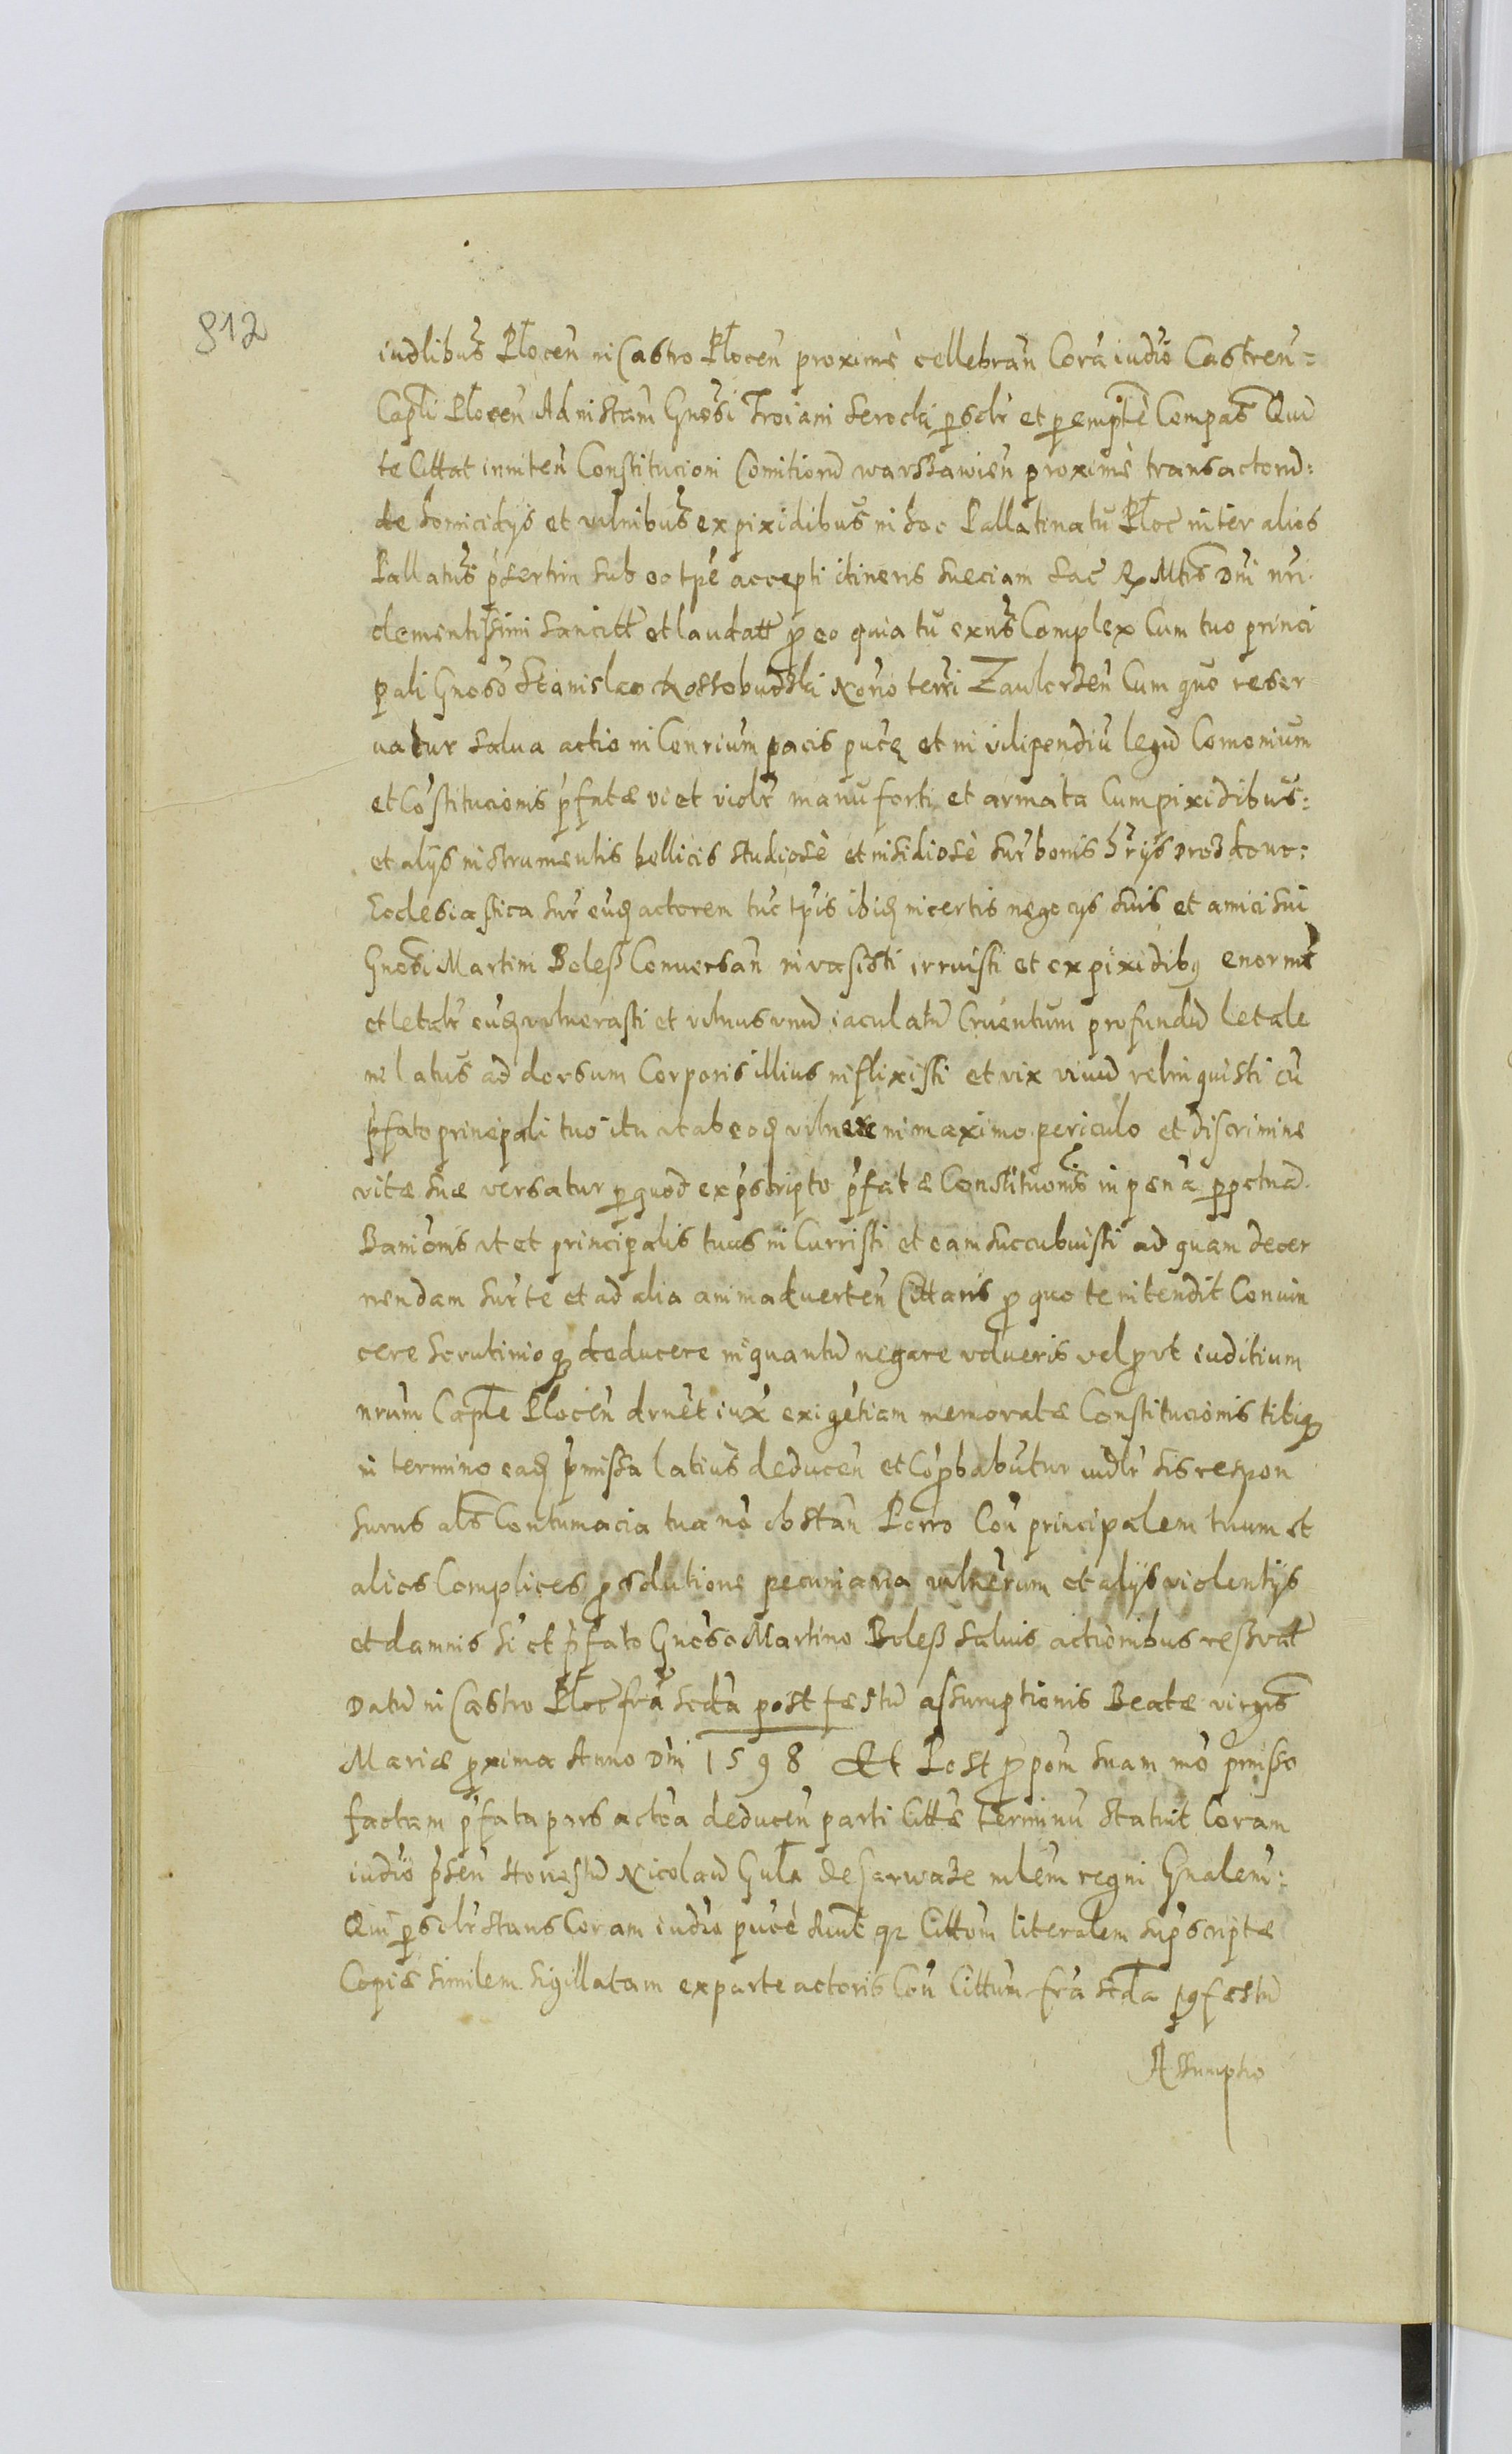 812
iudlibus Płocen in Castro Płocen proxime cellebran Cora iudio Castren=
Capli Płocen Ad nistam Gnosi Troiani Serocki psolr et pemptẻ Compas Qui
te Cittat inniten Constitucioni Comitioru warszawien proxime transactoru:
de homicidys et vulnibus ex pixidibus in hoc Pallatinatu Płoc inter alios
Pallatus psertim sub eo tpe accepti itineris Sueciam Sac R Mtis Dni nri
clementissimi Sancitt et laudatt p eo quia tu exns Complex Cum tuo princi
pali Gnoso Stanislao Kossobudzki Nořio terri Zawkrzen Cum quo reser
uatur Salua actio in Conrium pacis puce et in vilipendiu legu Comonium
et Costitucionis pfatæ vi et violr manu forti et armata Cum pixidibus:
et alys instrumentis bellicis studiose et insidiose sur bonis hrys
Ecclesiastica sur eud actorem tuc tpis ibid in certis negocys suis et amici sui
Gnosi Martini Boleß Conuersan inuasisti irruisti et ex pixidibq enormr
et letalr eud vulnerasti et vulnus unu iaculatu Cruentum profundu letale
in latus ad dorsum Corporis illius inflixisti et vix viuu relinquisti cu
pfato principali tuo itu ut ab eod vulnere in maximo periculo et discrimine
vitæ suæ versatur p quod ex pscripto pfatæ Constituonis in pena ppetua
Banionis ut et principalis tuus in Curristi et eam succubuisti ad quam decer
nendam sur te et ad alia animaduerten Cittaris p quo te intendit Conuin
cere Scrutinio q deducere in quantu negare volueris vel put iuditium
nrum Caple Płocen druet iux exigetiam memoratæ Constitucionis tibiq
in termino ead pmissa latius deducen et Copbabutur iudlr sis respon
surus als Contumacia tua no obstan Porro Con principalem tuum et
alios Complices p solutione pecuniaria vulnerum et alys violentys
et damnis si et pfato Gnoso Martino Boleß saluis actionibus reßruat
Datu in Castro Płoc fra scda post festu assumptionis Beatæ virgis
Mariæ pxima Anno Dni 1598 Et Post ppom suam mo pmisso
factam pfata pars actoa deducen parti Citte terminu statuit Coram
iudio psen Honestu Nicolau Guła de mlem regni Gnalem:
Qui psolr stans Coram iudio puce q Cittom literalem supscriptæ
Copiæ similem sigillatam ex parte actoris Con Cittum fra scda pq festu
Assumptio